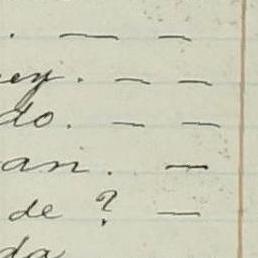 . — —
ey. — —
do. — —
an. —
de ? —
da